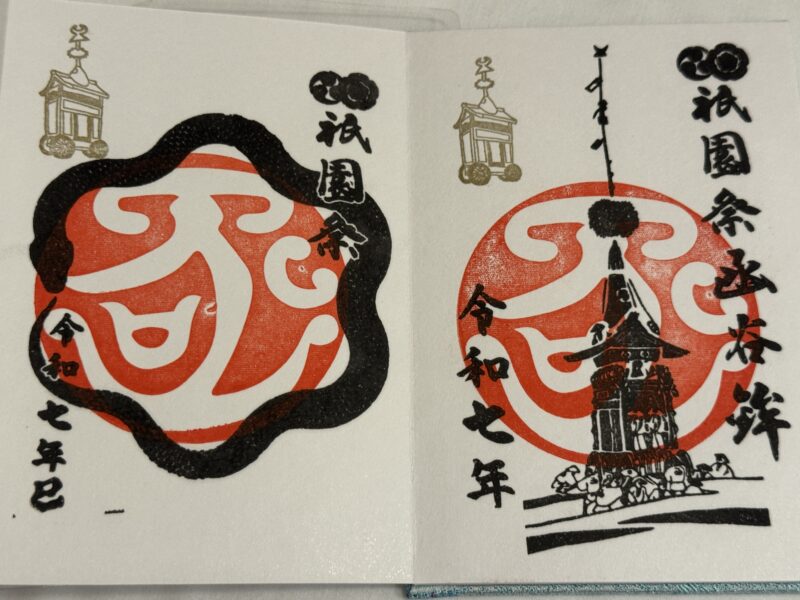 祇園祭
令和七年巳
祇園祭函谷鉾
令和七年